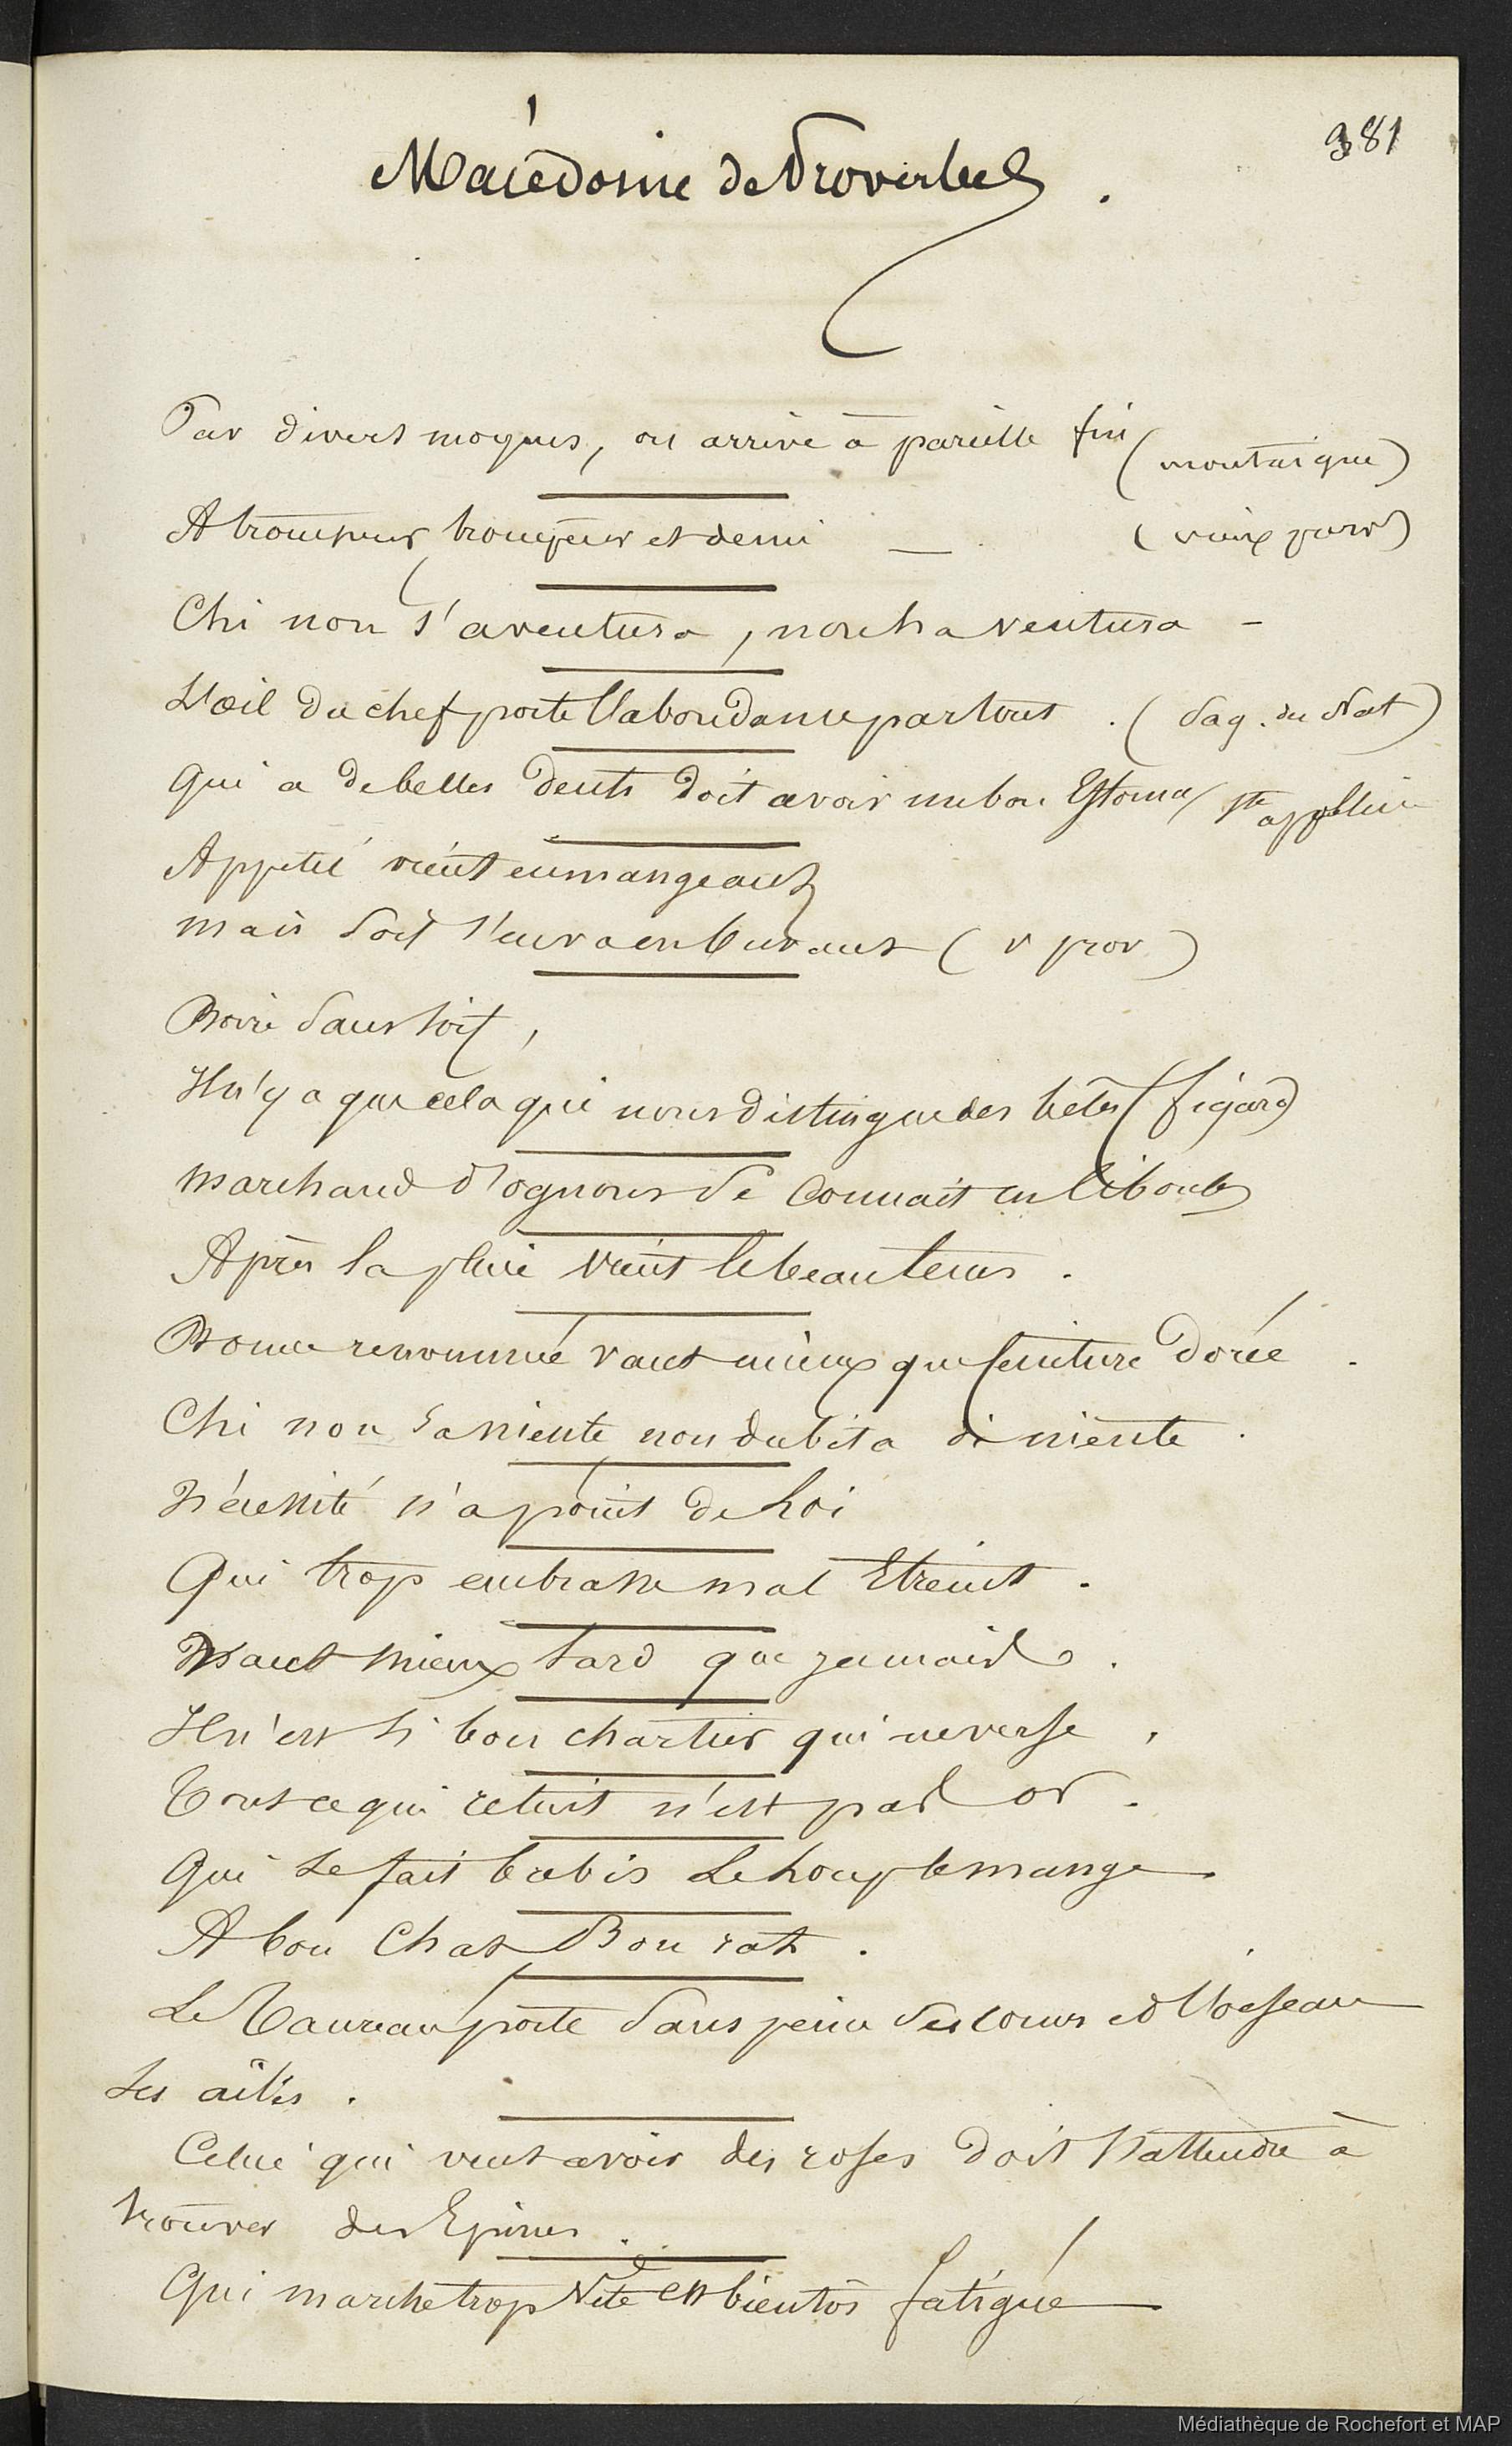 381
Macédoine de Proverbes.
Par divers moyens, on arrive à pareille fin (montaigne)
A trompeur, trompeur et demi — (vieux prov)
Chi non s'aventura, non ha ventura -
L'œil du chef porte l'abondance partout. (Sag. du Nat)
Qui a de belles dents doit avoir un bon Estomac (Ste appoline
Appetit vient en mangeant
mais soif s'en va en buvant (v prov)
Boire sans soif,
Il n'y a que cela qui nous distingue des bêtes (figaro)
Marchand d'ognons se connait en ciboules
Après la pluie vient le beau tems.
Bonne renommée vaut mieux que ceinture dorée.
Chi non sa niente non dubita di niente.
Nécessité n'a point de Loi
Qui trop embrasse mal Etreint.
Vaut mieux tard que jamais.
Il n'est si bon chartier qui ne verse,
Tout ce qui reluit n'est pas or.
Qui se fait brebis Le Loup le mange.
A bon Chat Bon rat.
Le Taureau porte sans peine ses cornes et l'oiseau
ses ailes.
Celui qui veut avoir des roses doit s'attendre à
trouver des Epines.
Qui marche trop Vite est bientôt fatigué
Médiathèque de Rochefort et MAP